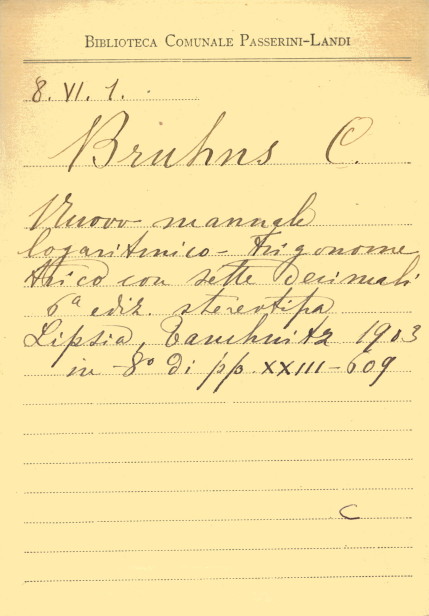 BIBLIOTECA COMUNALE PASSERINI-LANDI
8. VI. 1.
Bruhns C.
Nuovo manuale
logaritmico-trigonome
trico con sette decimali
6ª ediz. stereotipa
Lipsia, Tauchnitz 1903
in 8º di pp. XXIII-609
C